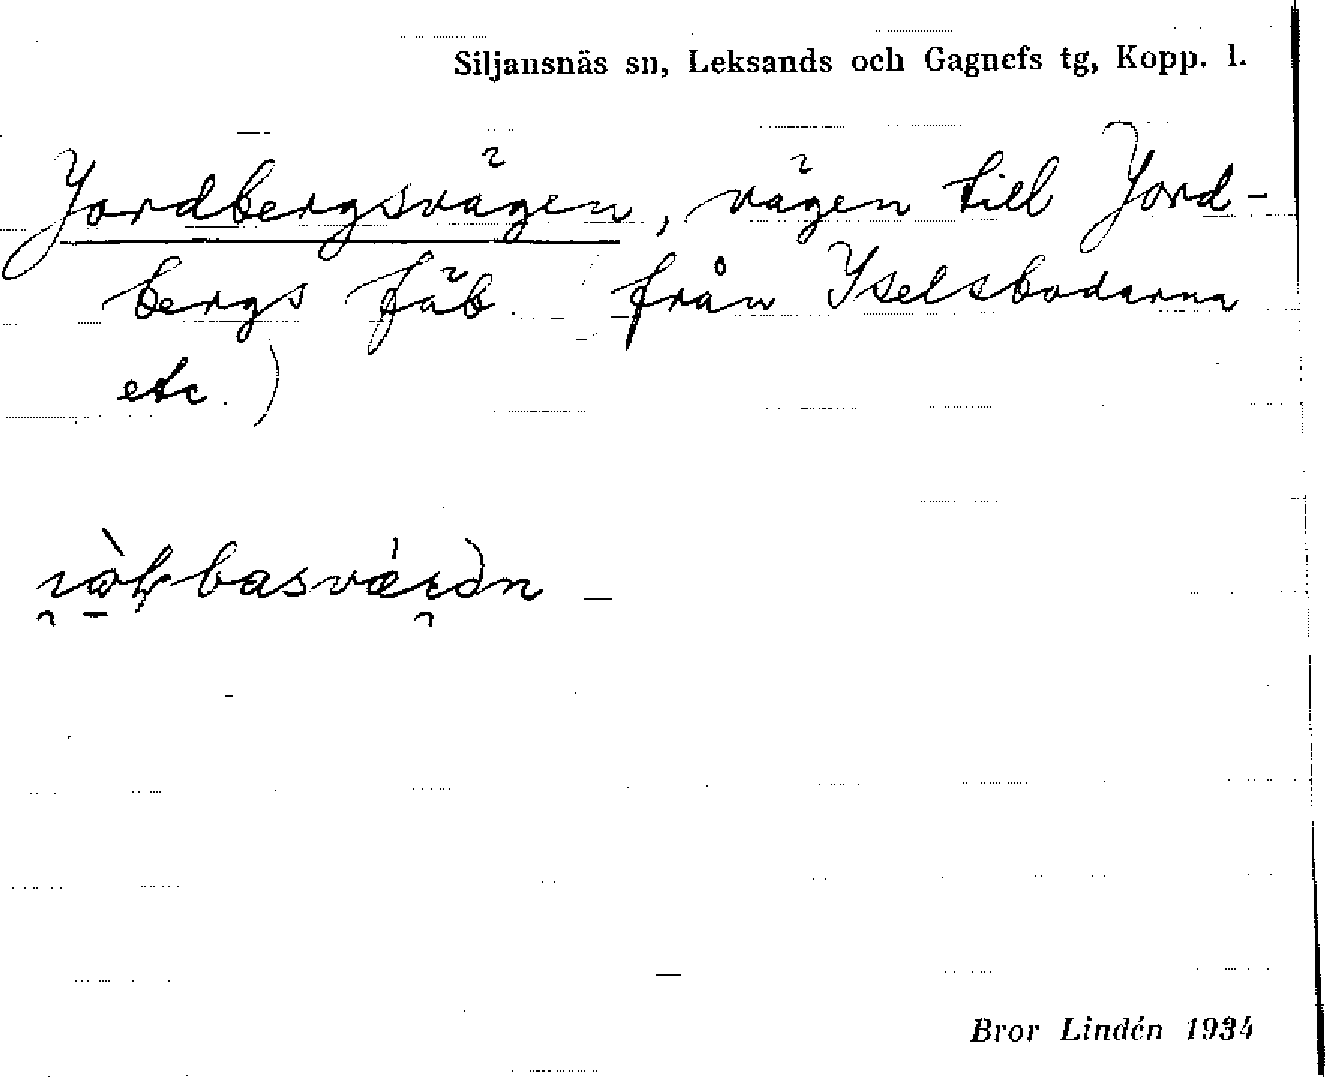 Siljansnäs sn, Leksands och Gagnefs tg, Kopp. l.
Jordbergsvägen, vägen till Jord-
bergs fäb. (från Iselsbodarna
etc.)
Bror Lindén 1934